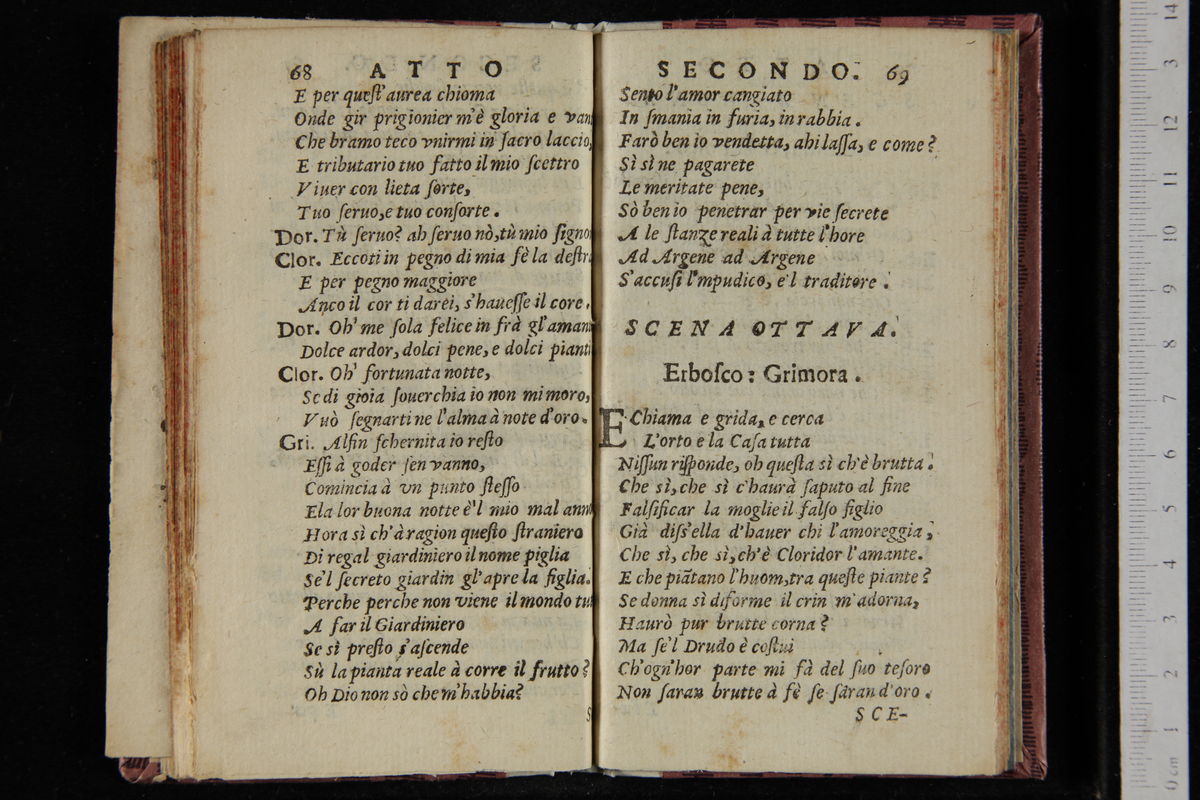 68 ATTO
E per queſt'aurea chioma
Onde gir prigionier m'è gloria e
Che bramo teco vnirmi in ſacro laccio,
E tributario tuo fatto il mio ſcettro
Viuer con lieta ſorte,
Tuo ſeruo,e tuo conſorte.
Dor. Tù ſeruo? ah ſeruo nò,tù mio
Clor. Eccoti in pegno di mia fè la
E per pegno maggiore
Anco il cor ti darei, s'haueſſe il core.
Dor. Oh' me ſola felice in frà
Dolce ardor, dolci pene, e dolci
Clor. Oh' fortunata notte,
Se di gioia ſouerchia io non mi moro,
Vuò ſegnarti ne l'alma à note d'oro.
Gri. Alfin ſchernita io reſto
Eſſi à goder ſen vanno,
Comincia à vn punto ſteſſo
Ela lor buona notte è'l mio mal
Hora sì ch'à ragion queſto ſtraniero
Di regal giardiniero il nome piglia
Se'l ſecreto giardin gl'apre la figlia.
Perche perche non viene il mondo
A far il Giardiniero
Se sì preſto s'aſcende
Sù la pianta reale à corre il frutto?
Oh Dio non sò che m'habbia?
SECONDO. 69
Sento l'amor cangiato
In ſmania in furia, in rabbia.
Farò ben io vendetta, ahi laſſa, e come?
Sì sì ne pagarete
Le meritate pene,
Sò ben io penetrar per vie ſecrete
A le ſtanze reali à tutte l'hore
Ad Argene ad Argene
S'accuſi l'mpudico, e'l traditore.
SCENA OTTAVA.
Erboſco: Grimora.
E Chiama e grida, e cerca
L'orto e la Caſa tutta
Niſſun riſponde, oh queſta sì ch'è brutta.
Che sì, che sì c'haurà ſaputo al fine
Falſificar la moglie il falſo figlio
Già diſs'ella d'hauer chi l'amoreggia,
Che sì, che sì, ch'è Cloridor l'amante.
E che piãtano l'huom,tra queſte piante?
Se donna sì diforme il crin m'adorna,
Haurò pur brutte corna?
Ma ſe'l Drudo è coſtui
Ch'ogn'hor parte mi fà del ſuo teſoro
Non ſaran brutte à fè ſe ſaran d'oro.
SCE-